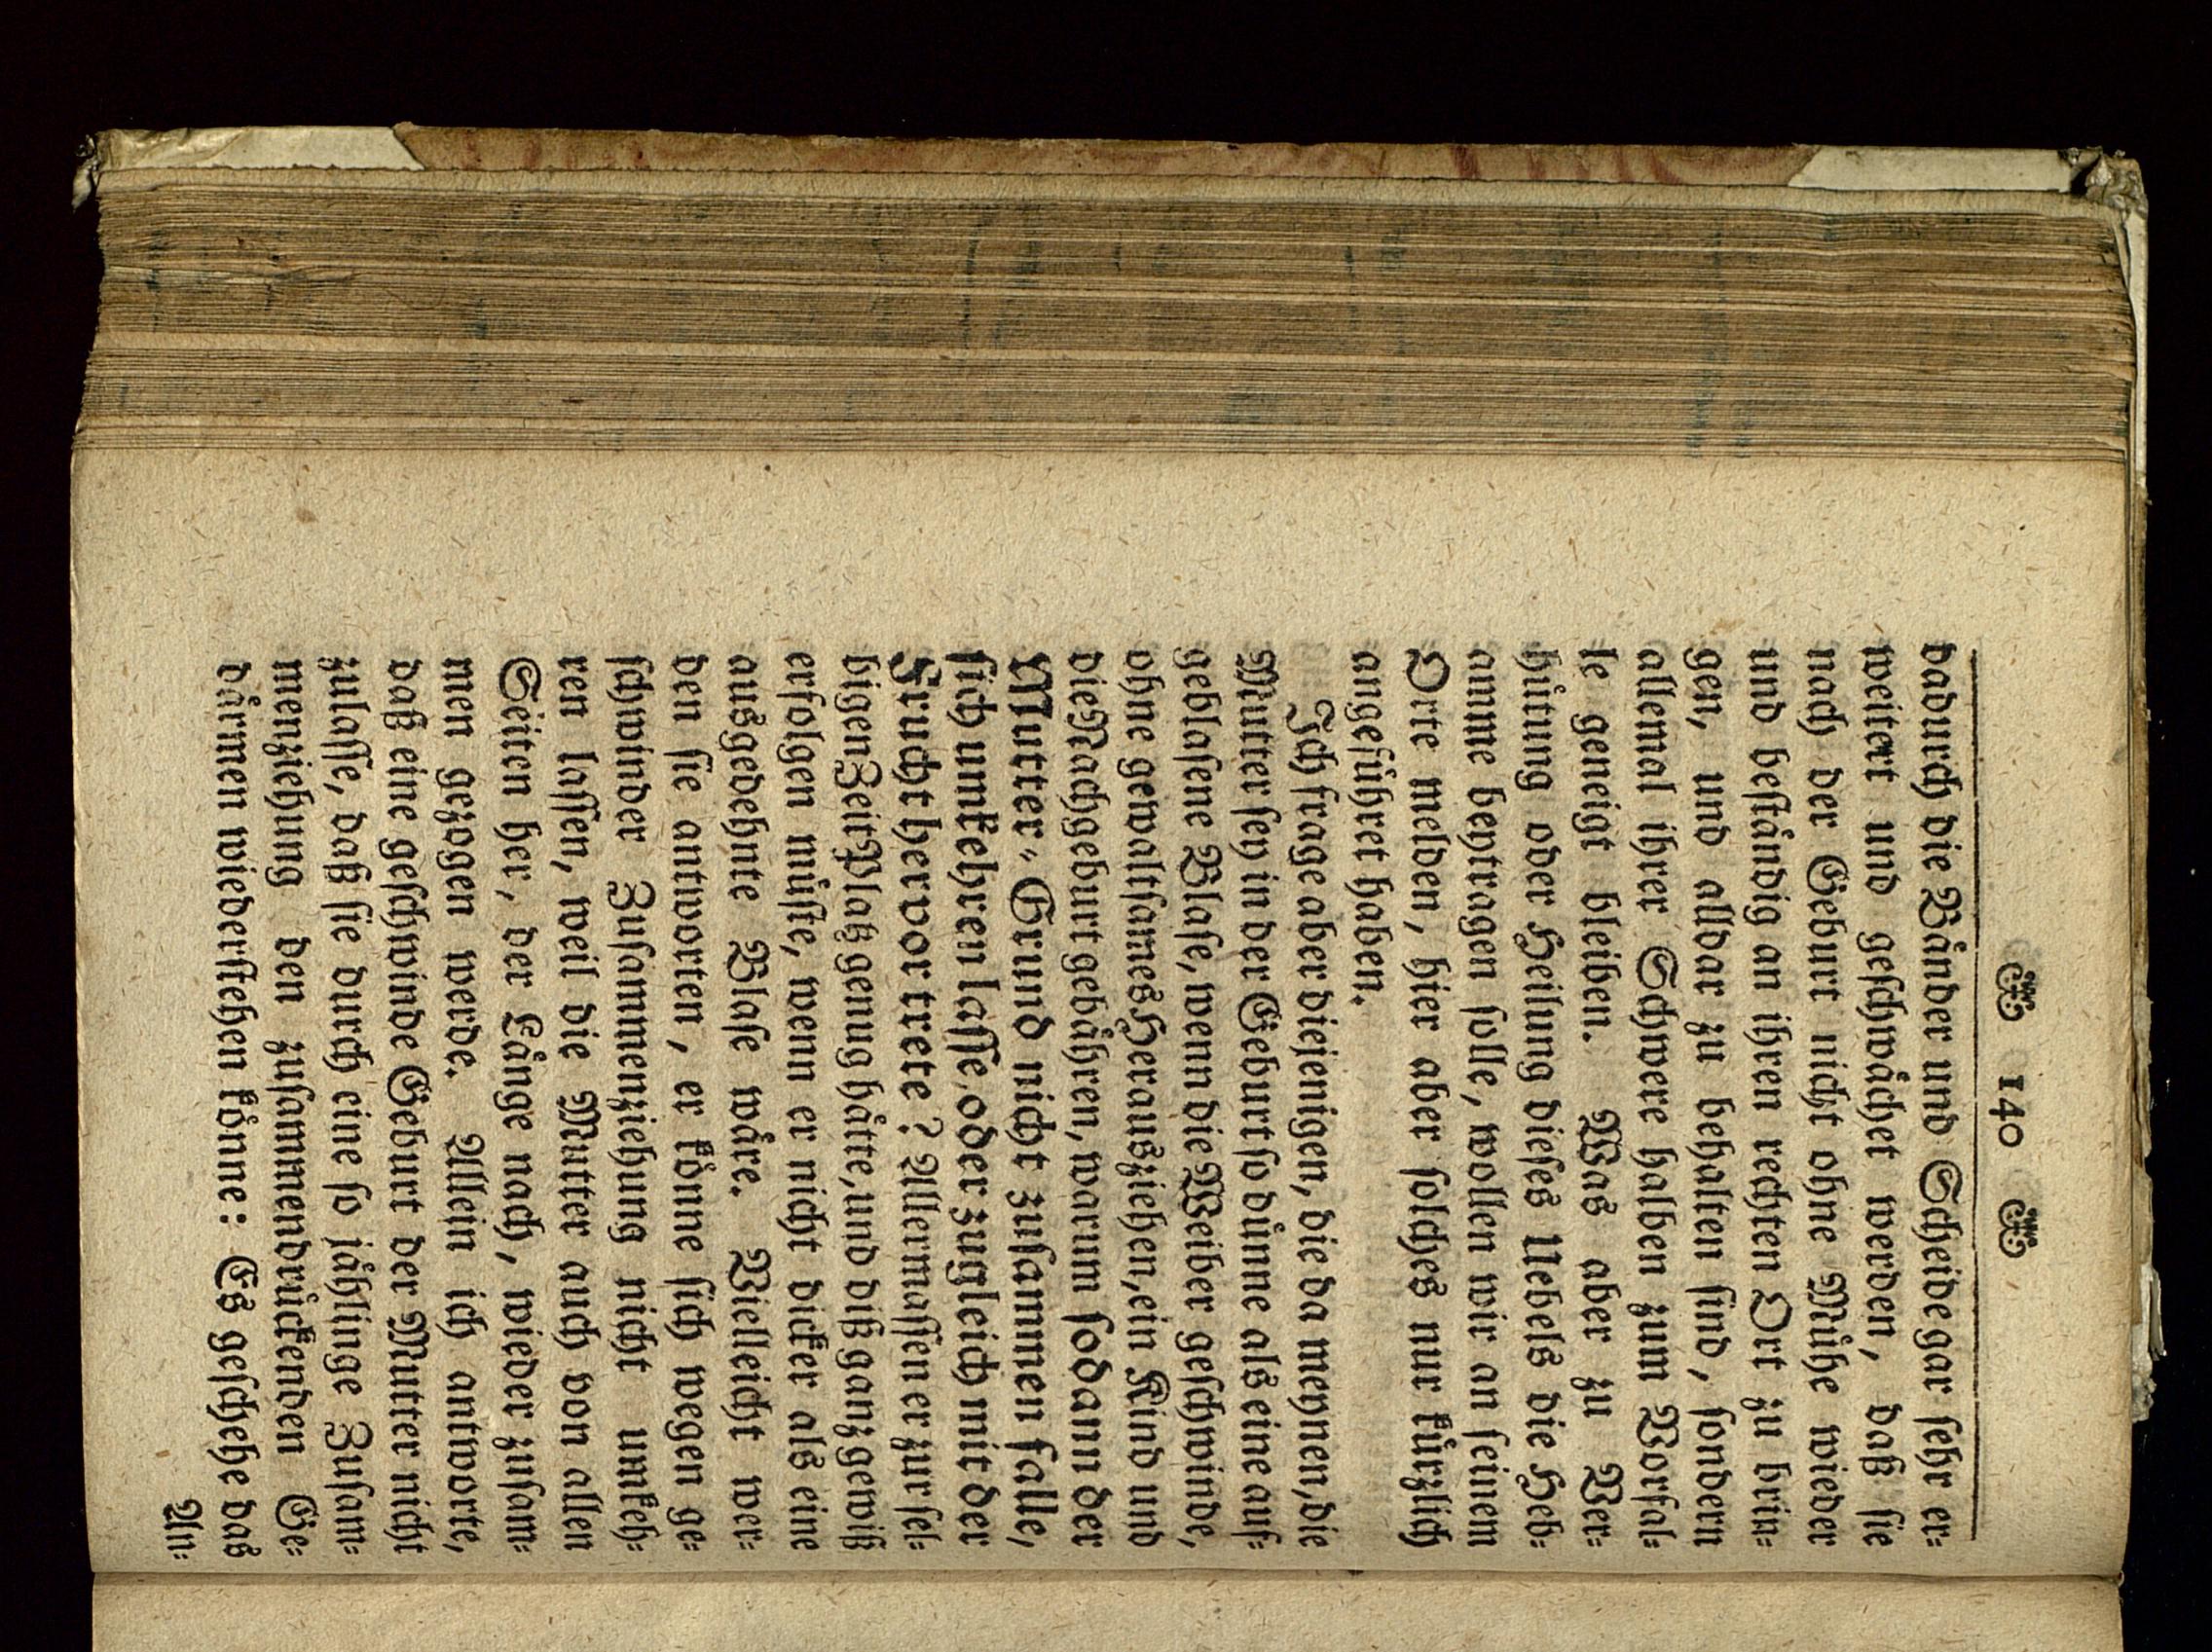 140
dadurch die Bånder und Scheide gar sehr er⸗
weitert und geschwåchet werden, daß sie
nach der Geburt nicht ohne Mühe wieder
und beståndig an ihren rechten Ort zu brin⸗
gen, und alldar zu behalten sind, sondern
allemal ihrer Schwere halben zum Vorfal⸗
le geneigt bleiben. Was aber zu Ver⸗
hütung oder Heilung dieses Uebels die Heb⸗
amme beytragen solle, wollen wir an seinem
Orte melden, hier aber solches nur kürzlich
angeführet haben.
Ich frage aber diejenigen, die da meynen, die
Mutter sey in der Geburt so dünne als eine auf⸗
geblasene Blase, wenn die Weiber geschwinde,
ohne gewaltsames Herausziehen, ein Kind und
die Nachgeburt gebåhren, warum sodann der
Mutter⸗Grund nicht zusammen falle,
sich umkehren lasse, oder zugleich mit der
Frucht hervor trete? Allermassen er zur sel⸗
bigen Zeit Platz genug håtte, und diß ganz gewiß
erfolgen müste, wenn er nicht dicker als eine
ausgedehnte Blase wåre. Vielleicht wer⸗
den sie antworten, er könne sich wegen ge⸗
schwinder Zusammenziehung nicht umkeh⸗
ren lassen, weil die Mutter auch von allen
Seiten her, der Långe nach, wieder zusam⸗
men gezogen werde. Allein ich antworte,
daß eine geschwinde Geburt der Mutter nicht
zulasse, daß sie durch eine so jåhlinge Zusam⸗
menziehung den zusammendrückenden Ge⸗
dårmen wiederstehen könne: Es geschehe das
An⸗